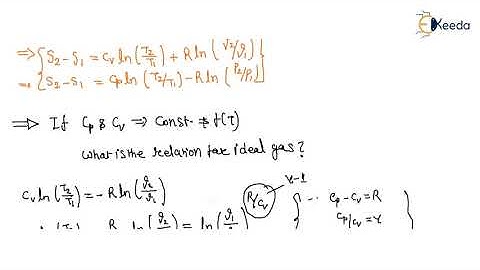 Ekeeda
⇒ { S2 - S1 = Cv ln (T2/T1) + R ln (V2/V1) }
⇒ { S2 - S1 = Cp ln (T2/T1) - R ln (P2/P1) }
⇒ If Cp & Cv ⇒ Const ≠ f(T)
What is the relation for ideal gas?
Cv ln (T2/T1) = - R ln (V2/V1)
R/Cv
γ-1
Cp - Cv = R
Cp/Cv = γ